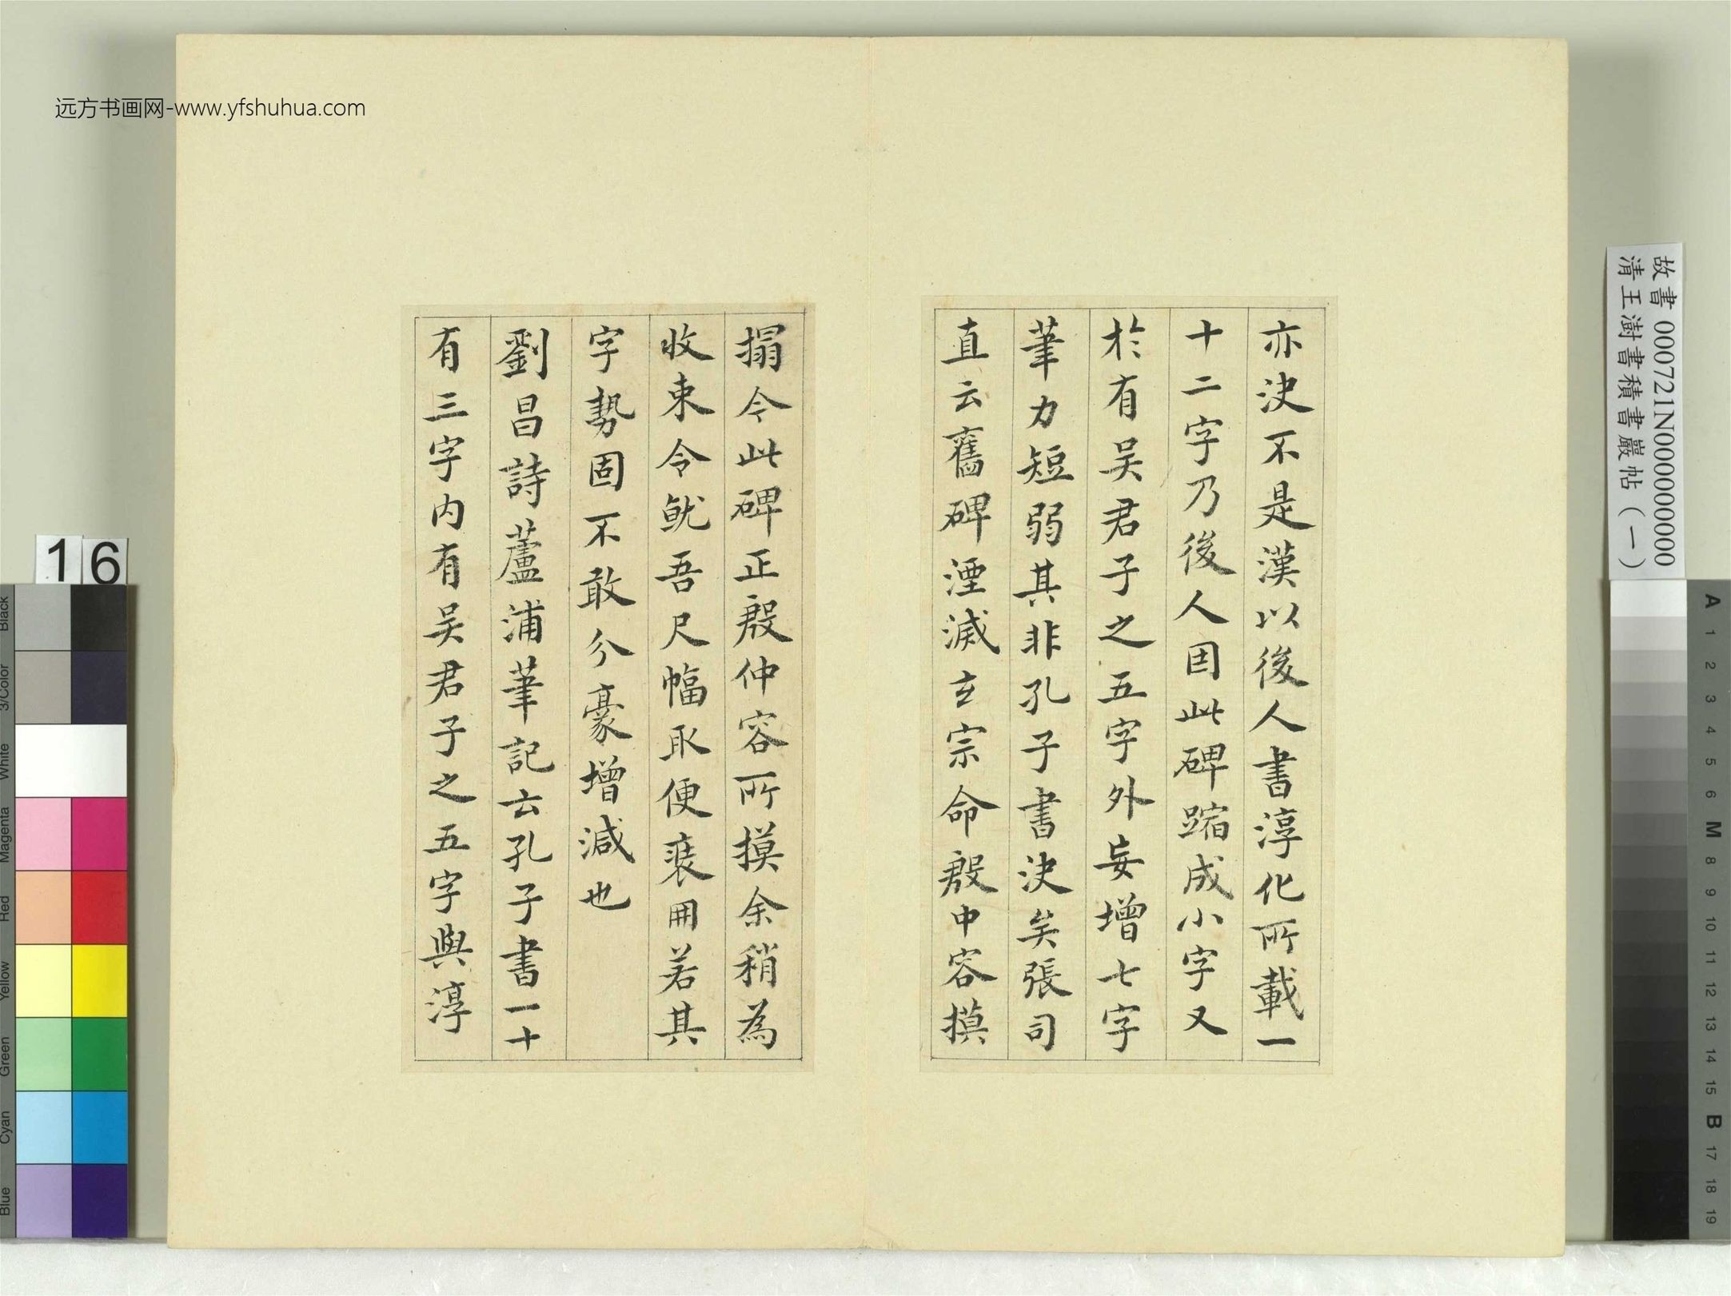 亦決不是漢以後人書淳化所載一
十二字乃後人因此碑蹜成小字又
於有吴君子之五字外妄增七字
筆力短弱其非孔子書決矣張司
直云舊碑湮滅玄宗命殷中容摸
搨今此碑正殷仲容所摸余稍為
收束令就吾尺幅取便裘冊若其
字勢固不敢分豪增減也
劉昌詩蘆浦筆記云孔子書一十
有三字内有吴君子之五字與淳
远方书画网-www.yfshuhua.com
故書 000721N000000000
清王澍書積書巖帖（一）
16
Black
3/Color
White
Magenta
Red
Yellow
Green
Cyan
Blue
A
1
2
3
4
5
6
M
8
9
10
11
12
13
14
15
B
17
18
19